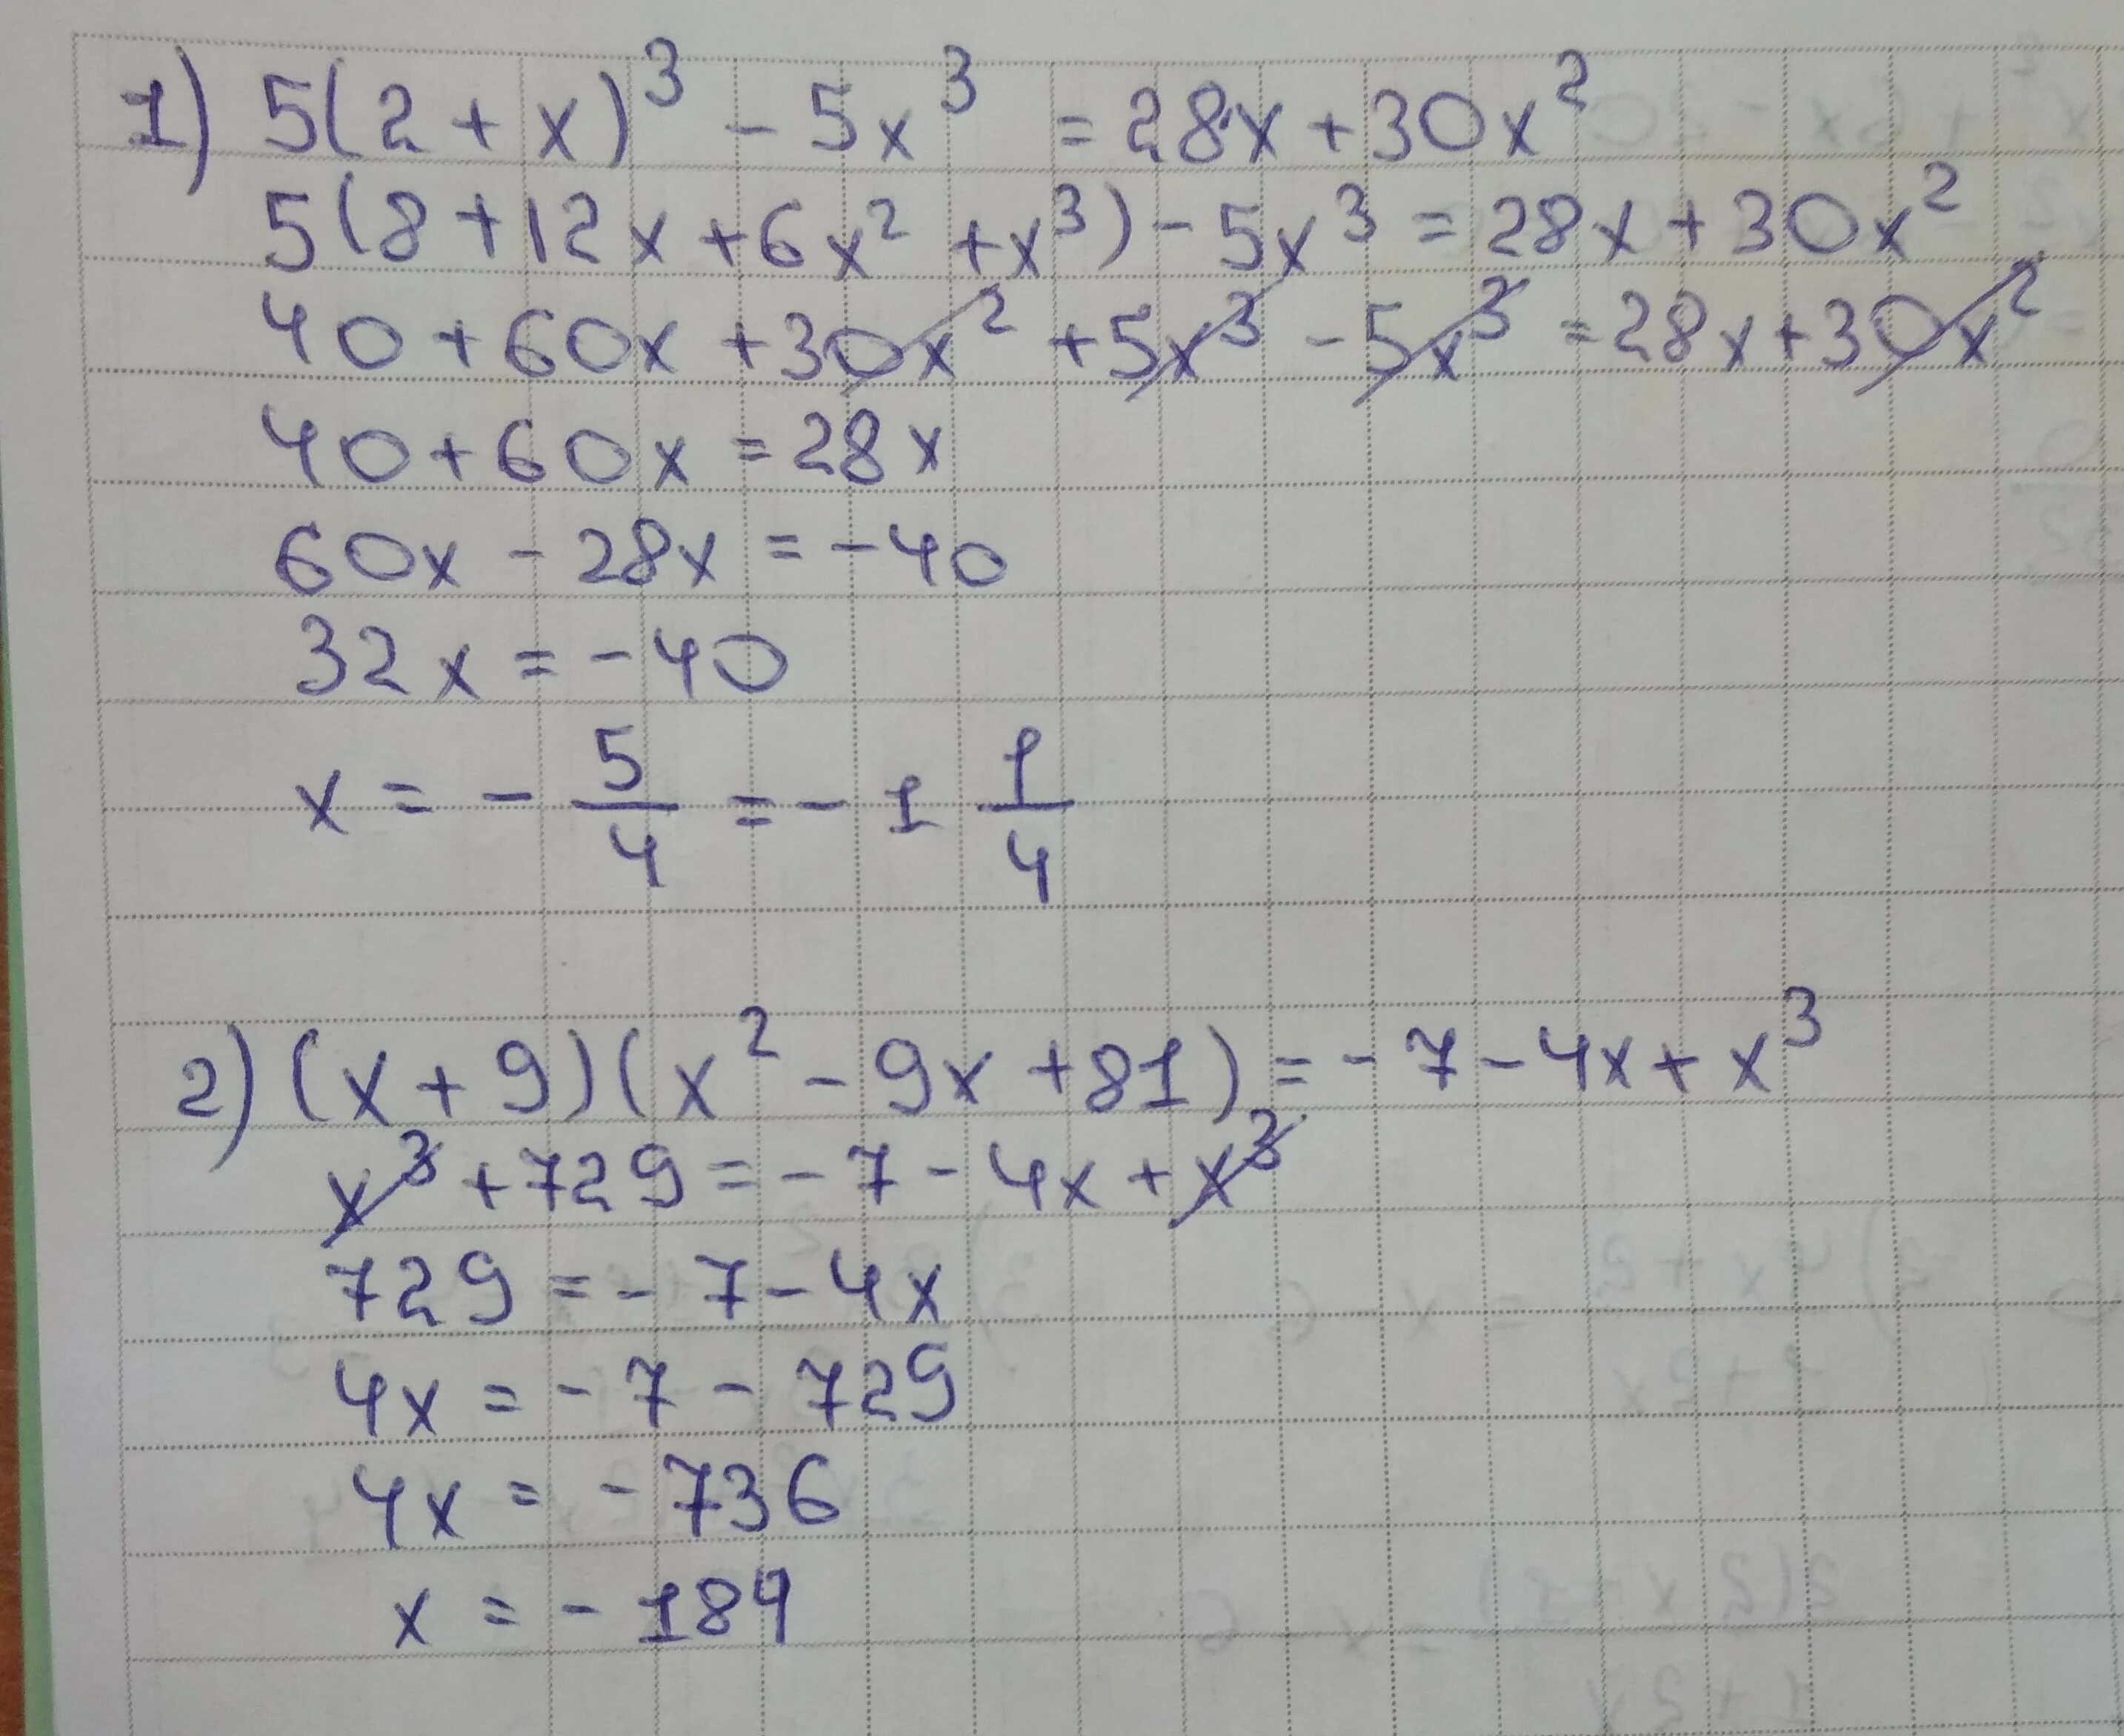 1) 5(2 + x)³ - 5x³ = 28x + 30x²
5(8 + 12x + 6x² + x³) - 5x³ = 28x + 30x²
40 + 60x + 30x² + 5x³ - 5x³ = 28x + 30x²
40 + 60x = 28x
60x - 28x = -40
32x = -40
x = - 5/4 = - 1 1/4
2) (x + 9)(x² - 9x + 81) = -7 - 4x + x³
x³ + 729 = -7 - 4x + x³
729 = -7 - 4x
4x = -7 - 729
4x = -736
x = -184